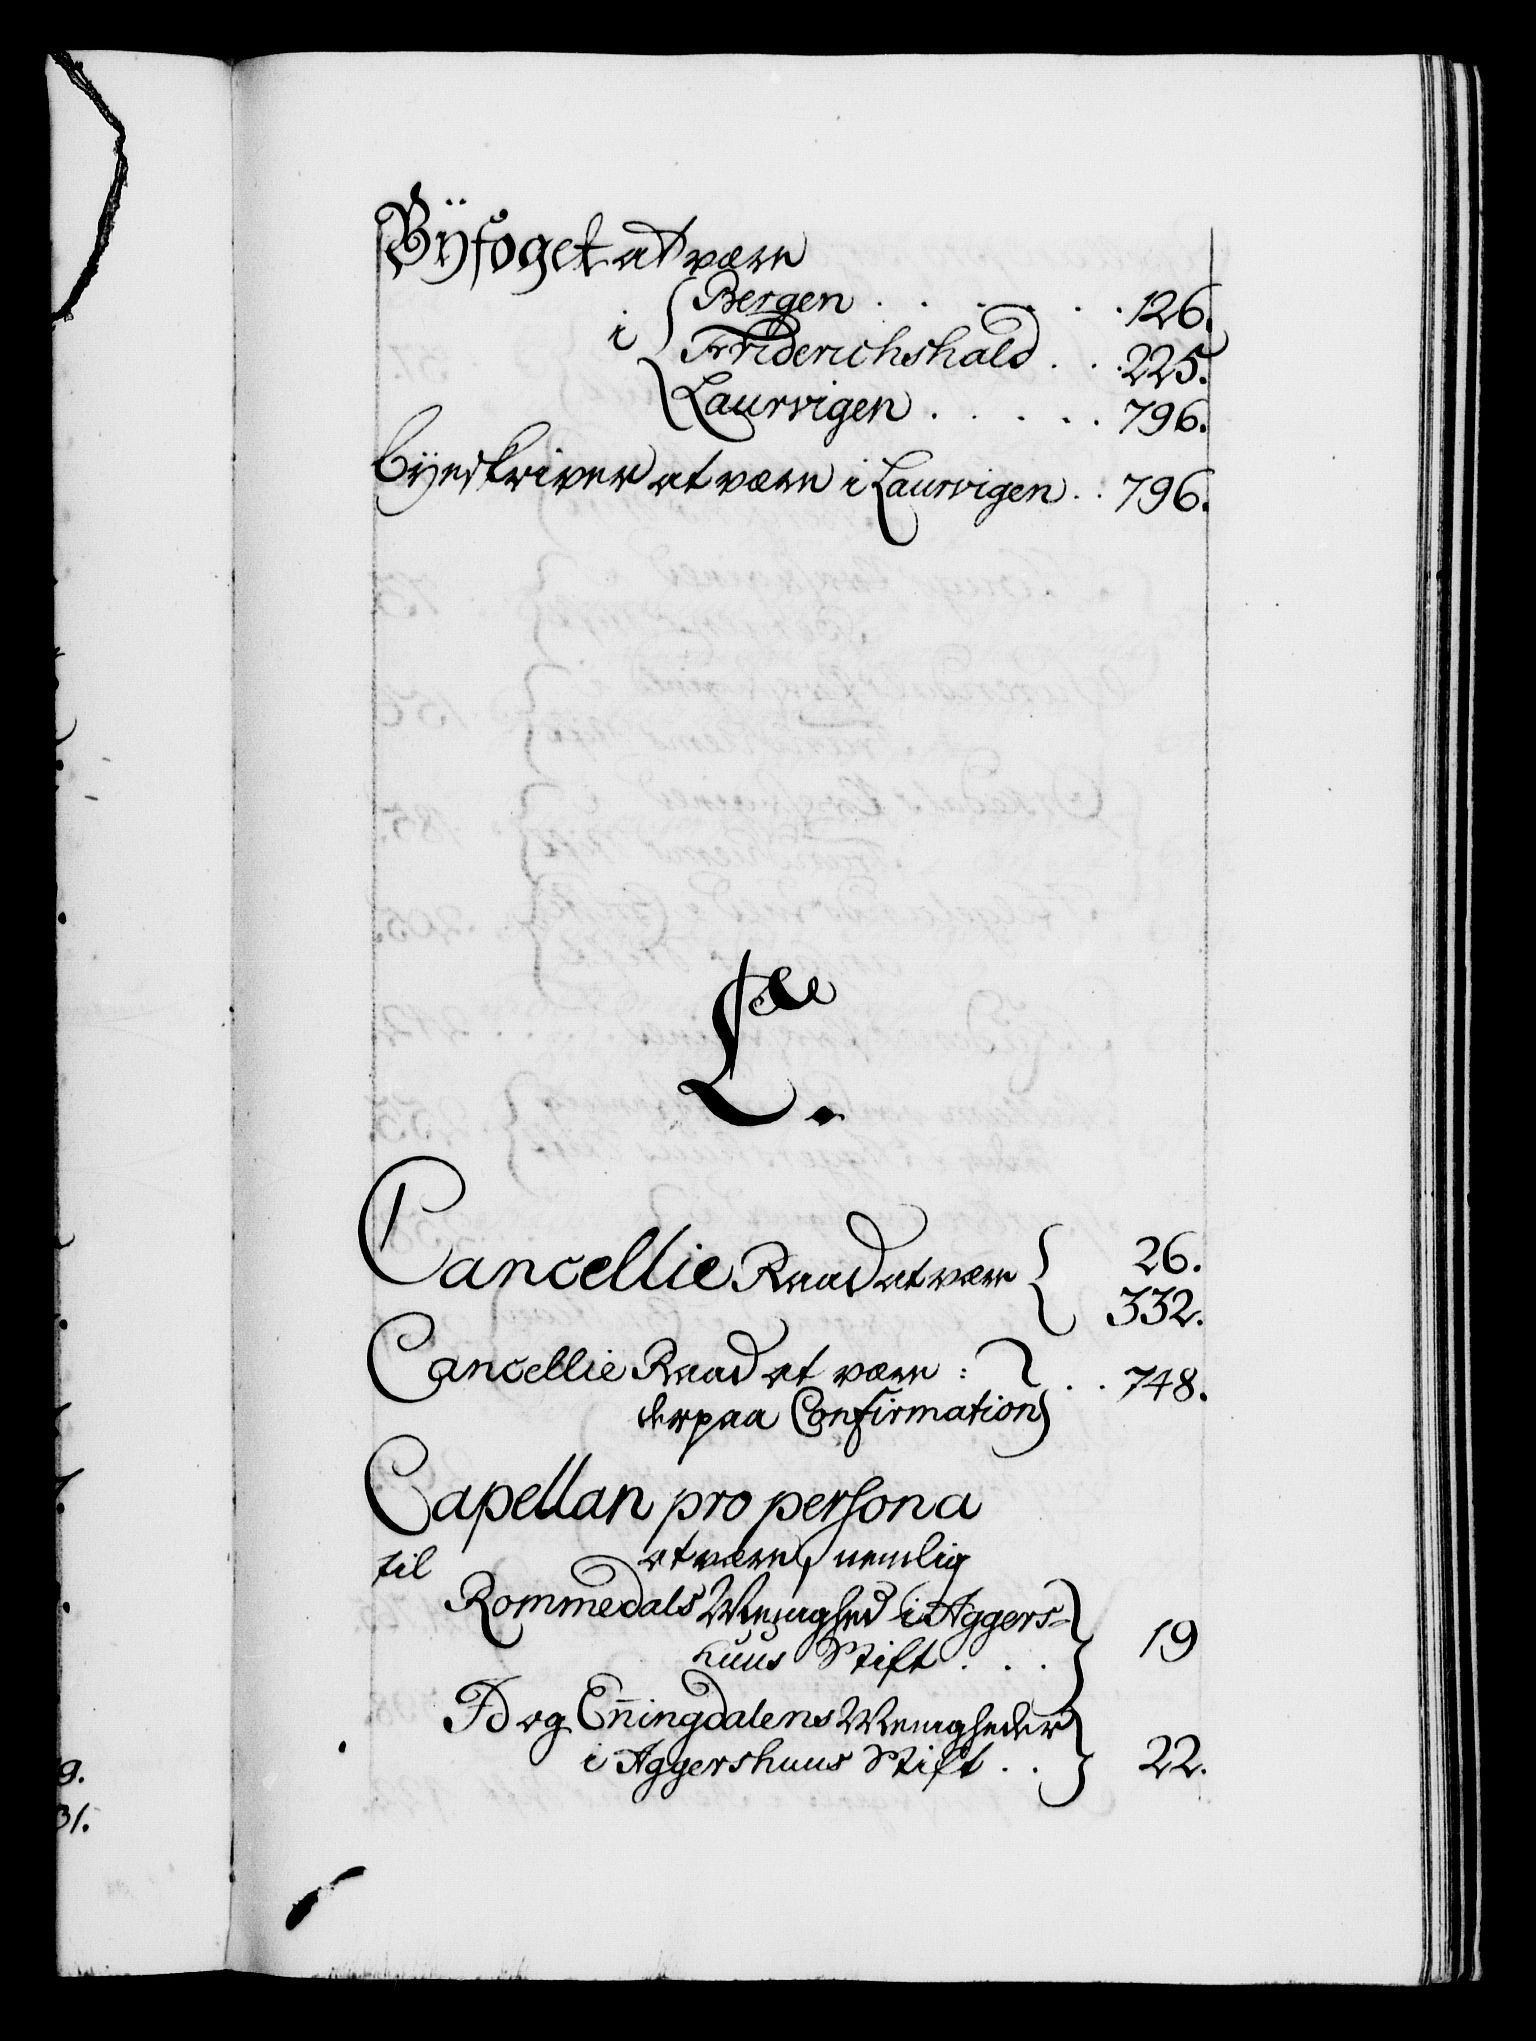 Bÿfoget at være
i { Bergen . . . . . . 126.
Friderichshald . . . 225.
Laurvigen . . . . . 796.
Bÿeskriver at være i Laurvigen . . 796.
C.
Cancellie Raad at være { 26.
332.
Cancellie Raad at være : } . . 748.
derpaa Confirmation
Capellan pro persona
at være, nemlig
til
Rommedals Menighed i Aggers-
huus Stift . . . } 19
Id og En̄ingdalens Menigheder
i Aggershuus Stift . . } 22.
9.
31.